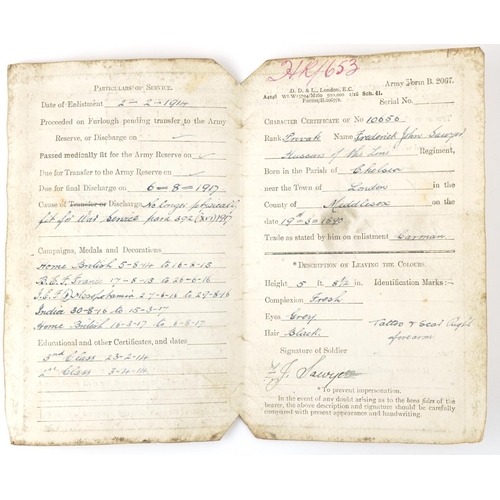 PARTICULARS OF SERVICE.
Date of Enlistment 2-2-1914
Proceeded on Furlough pending transfer to the Army
Reserve, or Discharge on
Passed medically fit for the Army Reserve on
Due for Transfer to the Army Reserve on
Due for final Discharge on 6-8-1917
Cause of Transfer or Discharge No longer physically
fit for War Service para 392 (XVI) KR
Campaigns, Medals and Decorations
Home British 5-8-14 to 16-8-15
B.E.F. France 17-8-15 to 26-6-16
Mesopotamia 27-6-16 to 29-8-16
India 30-8-16 to 15-3-17
Home British 16-3-17 to 6-8-17
Educational and other Certificates, and dates
3rd Class 23-2-14
2nd Class 3-4-14
HR/653
Army Form B. 2067.
D. D. & L., London, E.C.
Sch. 41.
Serial No.
CHARACTER CERTIFICATE OF No 10656
Rank Private Name Frederick John Sawyer
Hussars of the Line Regiment,
Born in the Parish of Chelsea
near the Town of London in the
County of Middlesex on the
date 19th-3-1890
Trade as stated by him on enlistment Carman.
*DESCRIPTION ON LEAVING THE COLOURS.
Height 5 ft. 8½ in. Identification Marks:—
Complexion Fresh
Eyes Grey
Tattoo & Scar Right
Hair Black.
forearm
Signature of Soldier
F J. Sawyer
*To prevent impersonation.
In the event of any doubt arising as to the bona fides of the
bearer, the above description and signature should be carefully
compared with present appearance and handwriting.